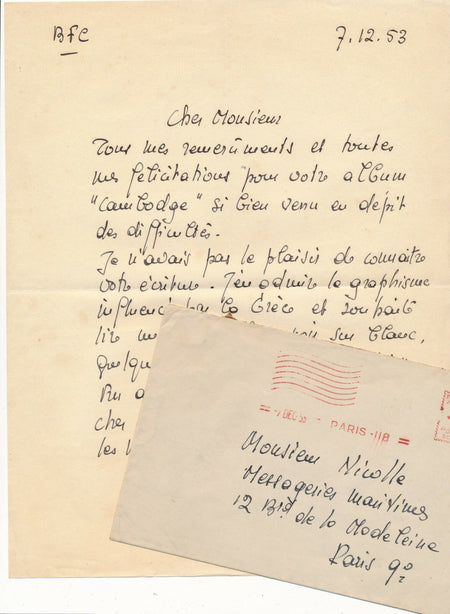 BfC
7.12.53
Cher Monsieur
Tous mes remerciments et toutes
mes félicitations pour votre album
"Cambodge" si bien venu en dépit
des difficultés.
Je n'avais pas le plaisir de connaître
votre écriture. J'en admire le graphisme
influencé par la Grèce et souhaite
lire
noir sur blanc,
quelqu
cher
les
7 DEC 53
PARIS-118
Monsieur Nicolle
Messageries maritimes
12 Bd de la Madeleine
Paris 9e